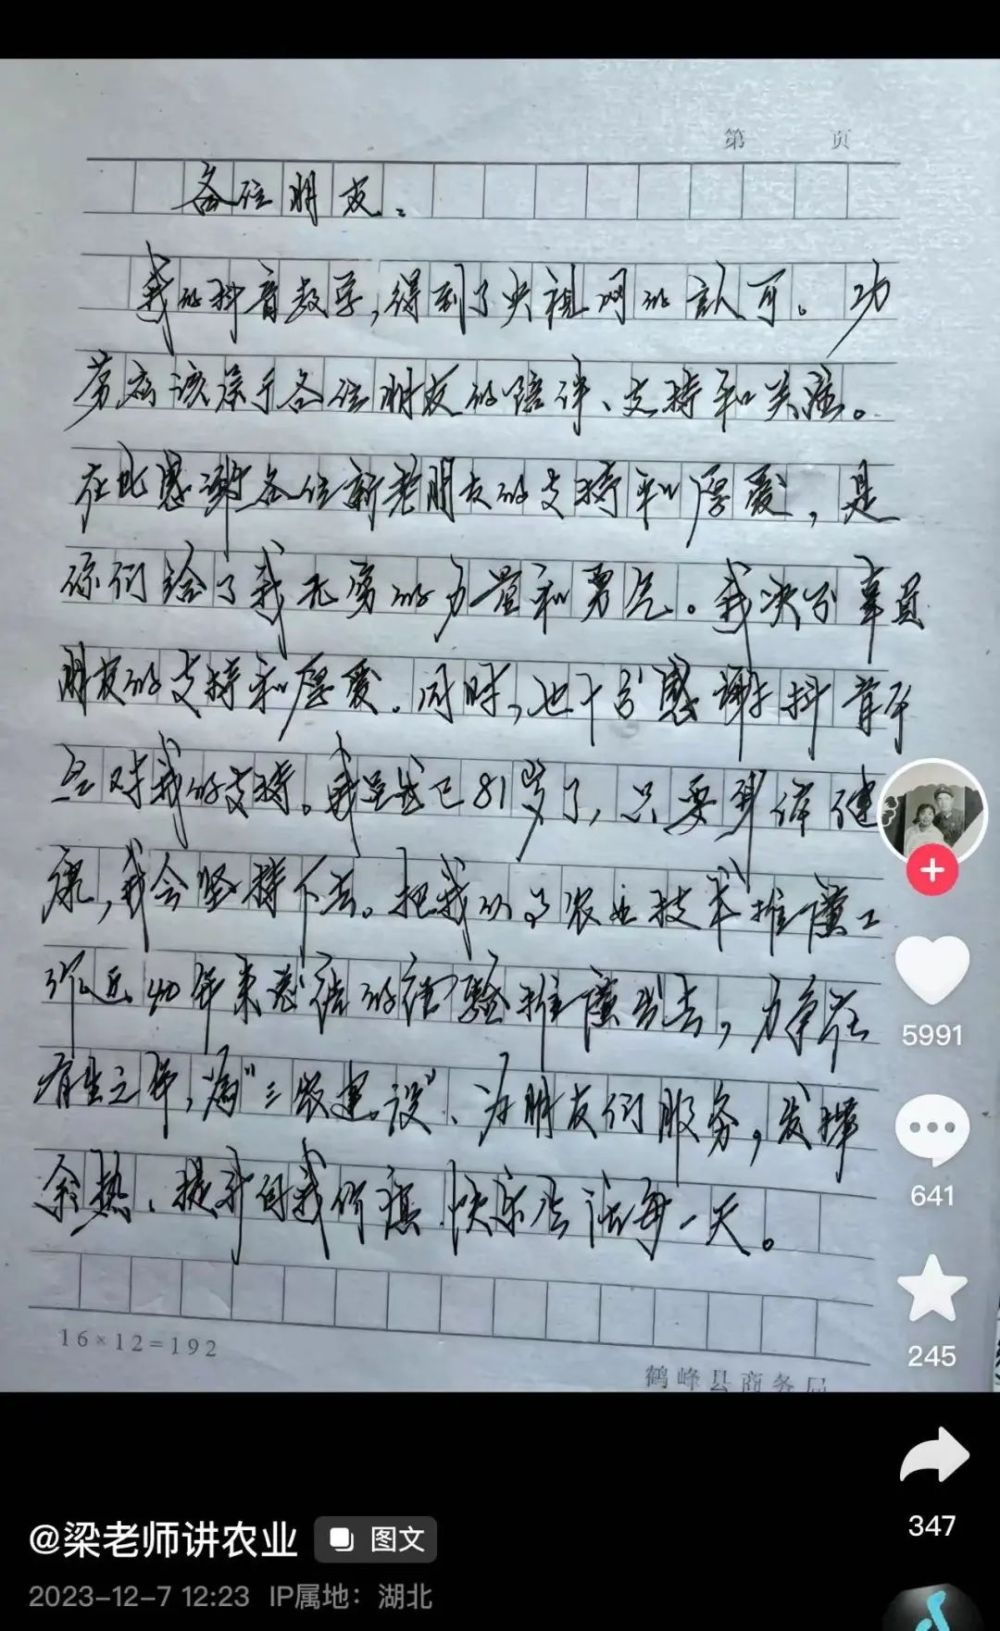 第 页
各位朋友:
我的抖音教学,得到了央视网的認可。功
劳应该属于各位朋友的陪伴、支持和关注。
在此感谢各位新老朋友的支持和厚爱,是
你们给了我无穷的力量和勇气。我决不辜负
朋友的支持和厚爱。同时,也十分感谢抖音平
台对我的支持。我虽然已81岁了,只要身体健
康,我会坚持下去。把我从事农业技术推廣工
作近40年来总结的经验推廣出去,力争在
有生之年,为"三农建设、为朋友们服务,发挥
余热、提升自我价值,快乐生活每一天。
16×12=192
鹤峰县商务局
5991
641
245
347
@梁老师讲农业 图文
2023-12-7 12:23 IP属地:湖北